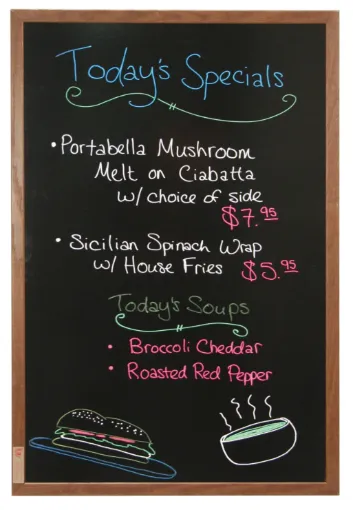 Today's Specials
• Portabella Mushroom
Melt on Ciabatta
w/ choice of side
$7.95
• Sicilian Spinach Wrap
w/ House Fries $5.95
Today's Soups
• Broccoli Cheddar
• Roasted Red Pepper